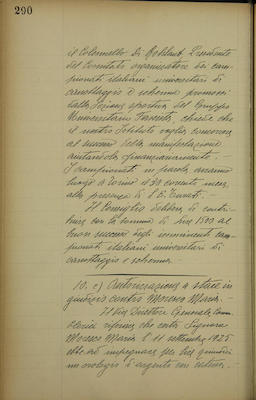 290
il Colonnello Di Robilant Presidente
del Comitato organizzatore dei cam-
pionati italiani universitari di
canottaggio e scherma promossi
dalla Sezione sportiva del Gruppo
Universitario Fascista, chiede che
il nostro Istituto voglia concorrere
al successo della manifestazione
aiutandola finanziariamente. -
I campionati in parola avranno
luogo a Torino il 30 corrente mese,
alla presenza di S. E. Turati.
Il Consiglio delibera di contri-
buire con la somma di Lire 1500 al
buon successo degli imminenti cam-
pionati italiani universitari di
canottaggio e scherma.
10. c) Autorizzazione a stare in
giudizio contro Moresco Maria. -
Il Vice Direttore Generale, Comm.
riferisce che certa Signora
Moresco Maria l'11 settembre 1925
ebbe ad impegnare per lire quindici
un orologio d'argento con catena.